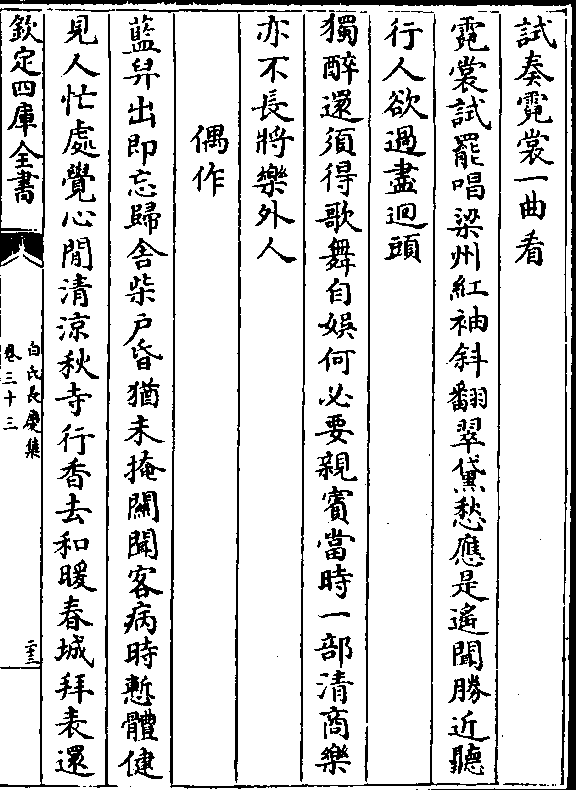 試奏霓裳一曲看
霓裳試罷唱梁州紅袖斜翻翠黛愁應是遙聞勝近聽
行人欲過盡迴頭
獨醉還須得歌舞自娛何必要親賓當時一部清商樂
亦不長將樂外人
偶作
藍舁出即忘歸舎柴戸昏猶未掩關聞客病時慙體健
見人忙處覺心閒清涼秋寺行香去和暖春城拜表還
欽定四庫全書
白氏長慶集
卷三十三
二十三